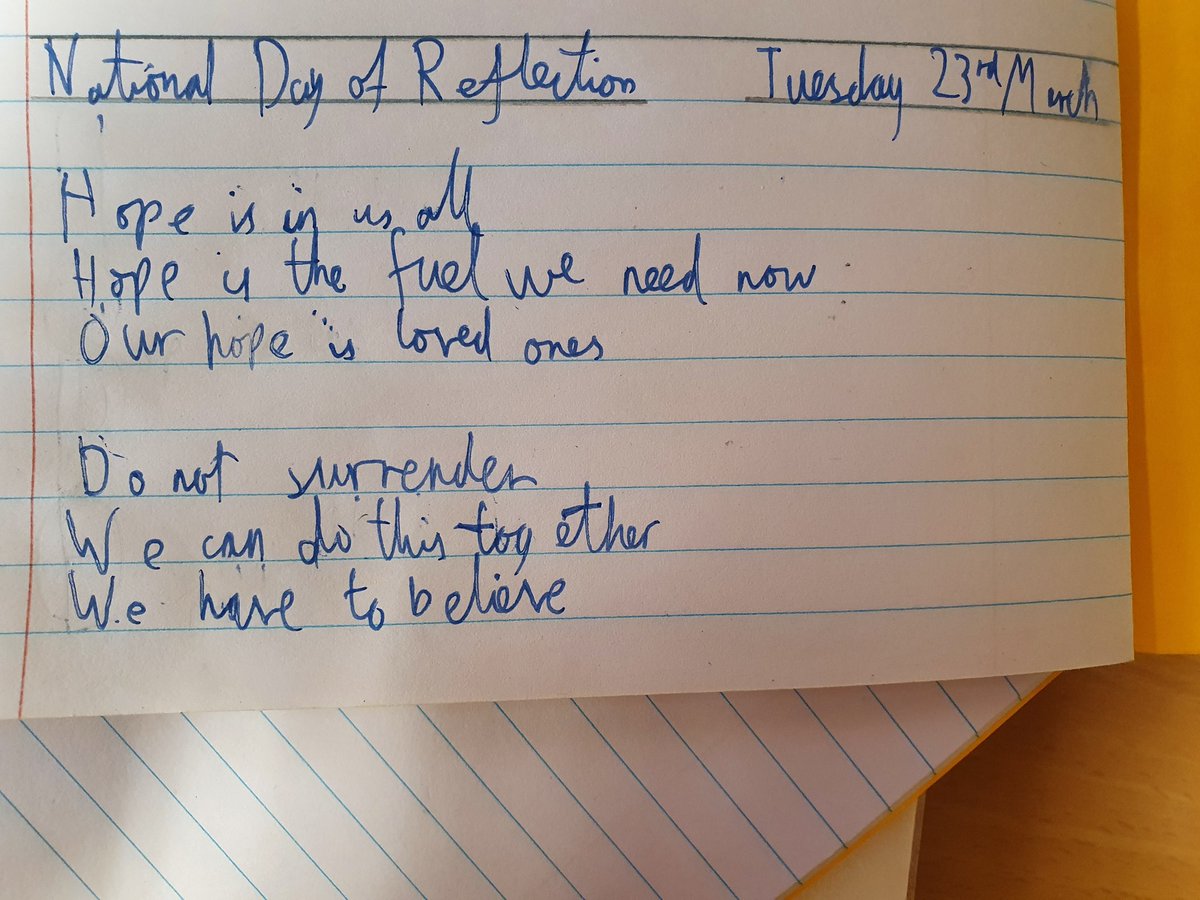 National Day of Reflection Tuesday 23rd March
Hope is in us all
Hope is the fuel we need now
Our hope is loved ones
Do not surrender
We can do this together
We have to believe